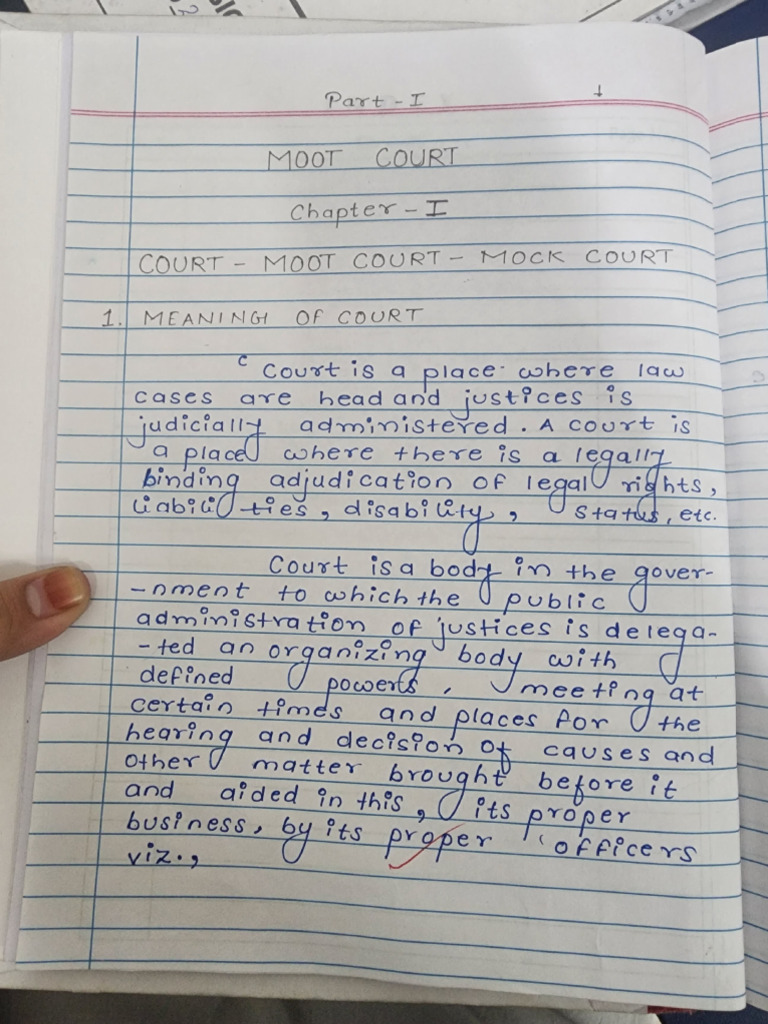 Part - I
MOOT COURT
Chapter - I
COURT - MOOT COURT - MOCK COURT
1. MEANING OF COURT
c Court is a place where law
cases are head and justices is
judicially administered. A court is
a place where there is a legally
binding adjudication of legal rights,
liabili ties, disability, status, etc.
Court is a body in the gover-
-nment to which the public
administration of justices is delega-
-ted an organizing body with
defined powers, meeting at
certain times and places for the
hearing and decision of causes and
other matter brought before it
and aided in this, its proper
business, by its proper officers
viz.,